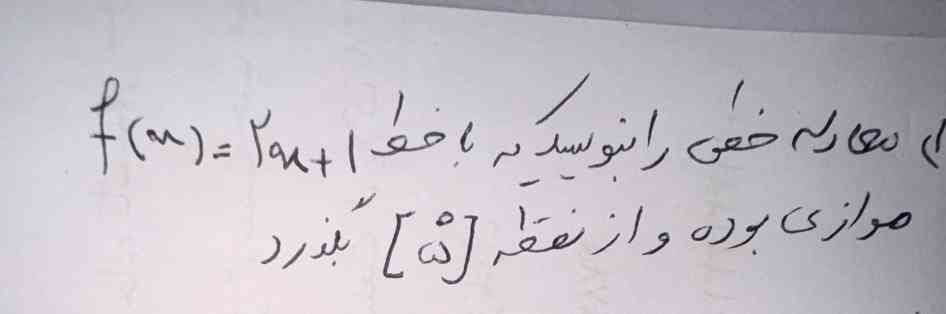 ۱) معادله خطی را بنویسید که با خط f(x) = ۲x + ۱
موازی بوده و از نقطه [۵ ۵] بگذرد